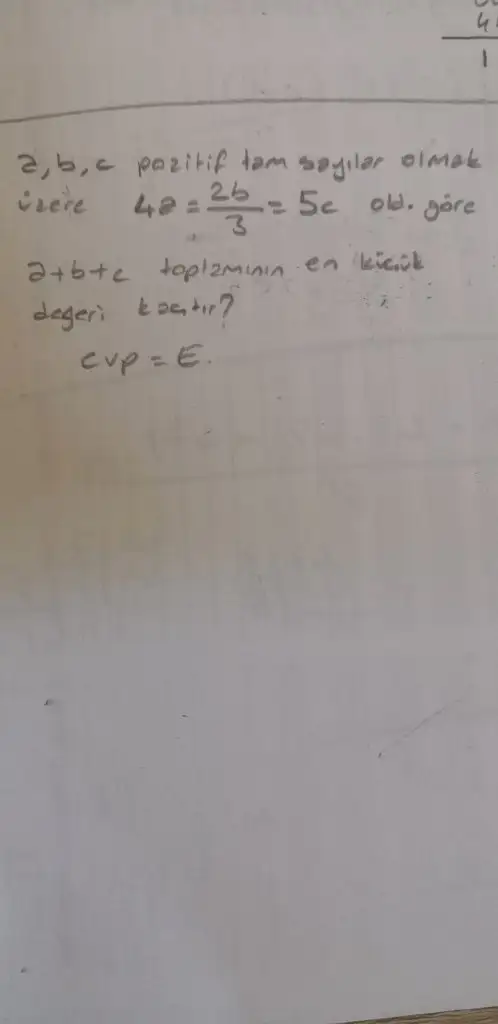 4
1
a, b, c pozitif tam sayılar olmak
üzere 4a = 2b/3 = 5c old. göre
a+b+c toplamının en küçük
değeri kaçtır?
cvp = E.